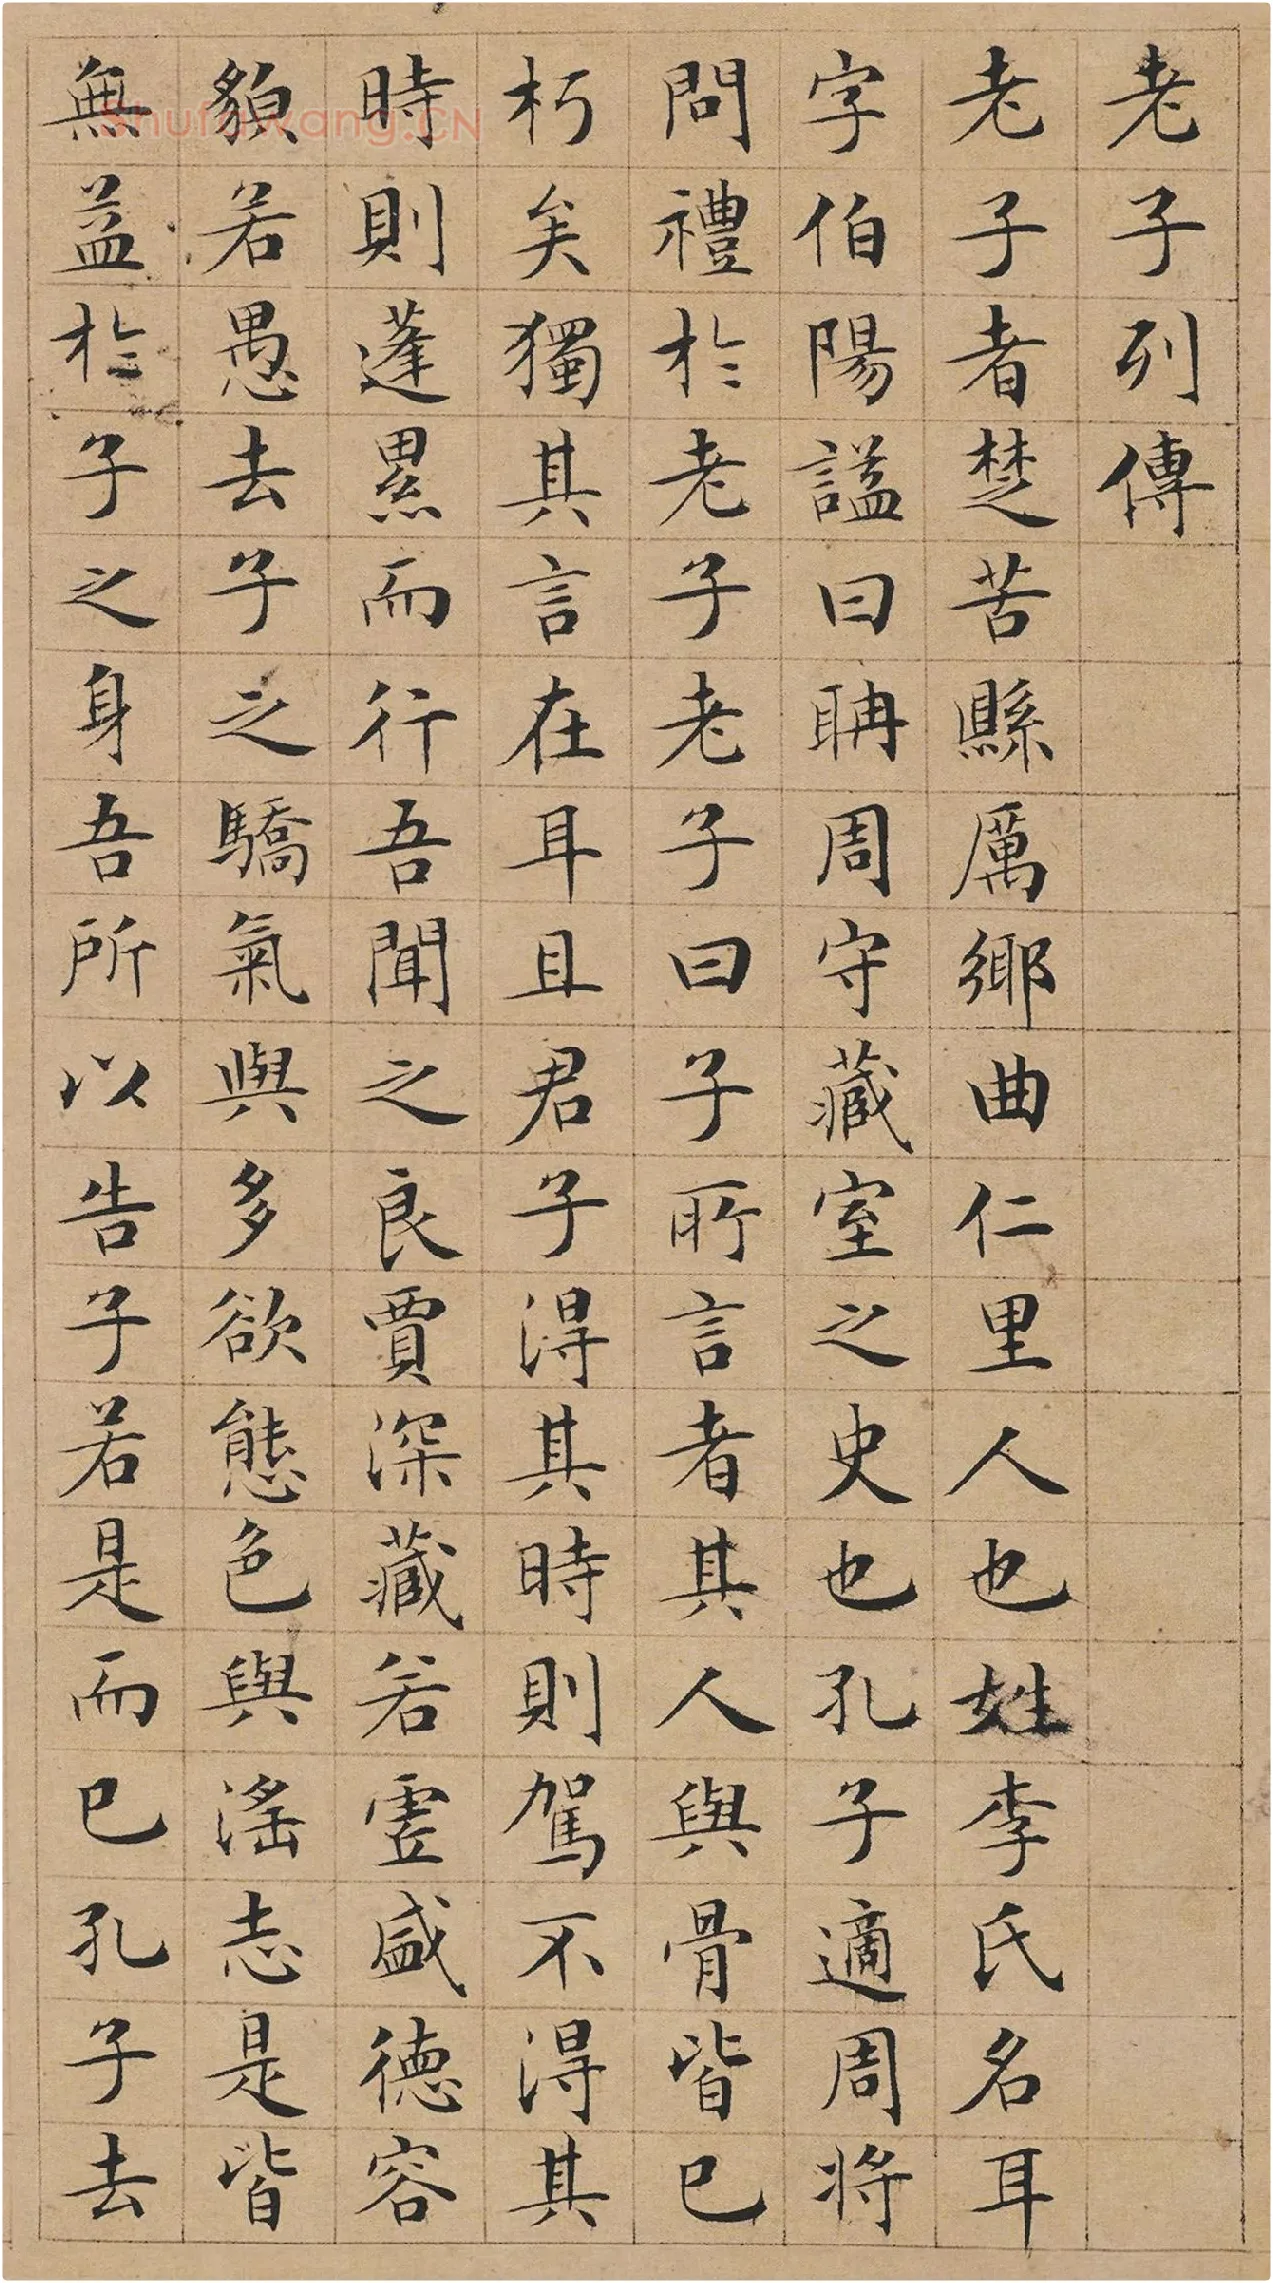 老子列傳
老子者楚苦縣厲鄉曲仁里人也姓李氏名耳
字伯陽謚曰聃周守藏室之史也孔子適周將
問禮於老子老子曰子所言者其人與骨皆已
朽矣獨其言在耳且君子得其時則駕不得其
時則蓬累而行吾聞之良賈深藏若虛盛德容
貌若愚去子之驕氣與多欲態色與淫志是皆
無益於子之身吾所以告子若是而已孔子去
Shufawang.CN